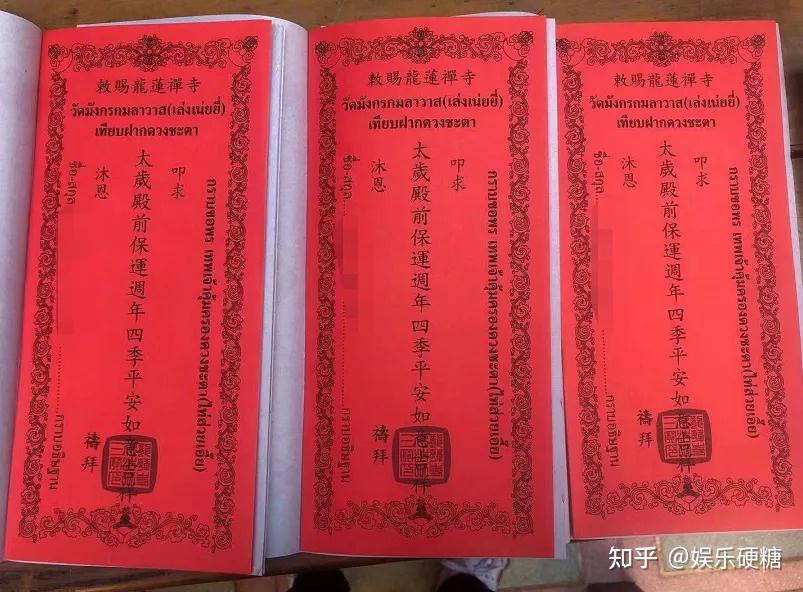 敕賜龍蓮禪寺
วัดมังกรกมลาวาส(เล่งเน่ยยี่)
เทียบฝากดวงชะตา
กราบขอพร เทพเจ้าคุ้มครองดวงชะตา(ไท้ส่วยเอี้ย)
叩求
太歲殿前保運週年四季平安如意
沐恩 禱拜
ชื่อ-สกุล กราบอธิษฐาน
敕賜龍蓮禪寺
วัดมังกรกมลาวาส(เล่งเน่ยยี่)
เทียบฝากดวงชะตา
กราบขอพร เทพเจ้าคุ้มครองดวงชะตา(ไท้ส่วยเอี้ย)
叩求
太歲殿前保運週年四季平安如意
沐恩 禱拜
ชื่อ-สกุล กราบอธิษฐาน
敕賜龍蓮禪寺
วัดมังกรกมลาวาส(เล่งเน่ยยี่)
เทียบฝากดวงชะตา
กราบขอพร เทพเจ้าคุ้มครองดวงชะตา(ไท้ส่วยเอี้ย)
叩求
太歲殿前保運週年四季平安如意
沐恩 禱拜
ชื่อ-สกุล กราบอธิษฐาน
知乎 @娱乐硬糖